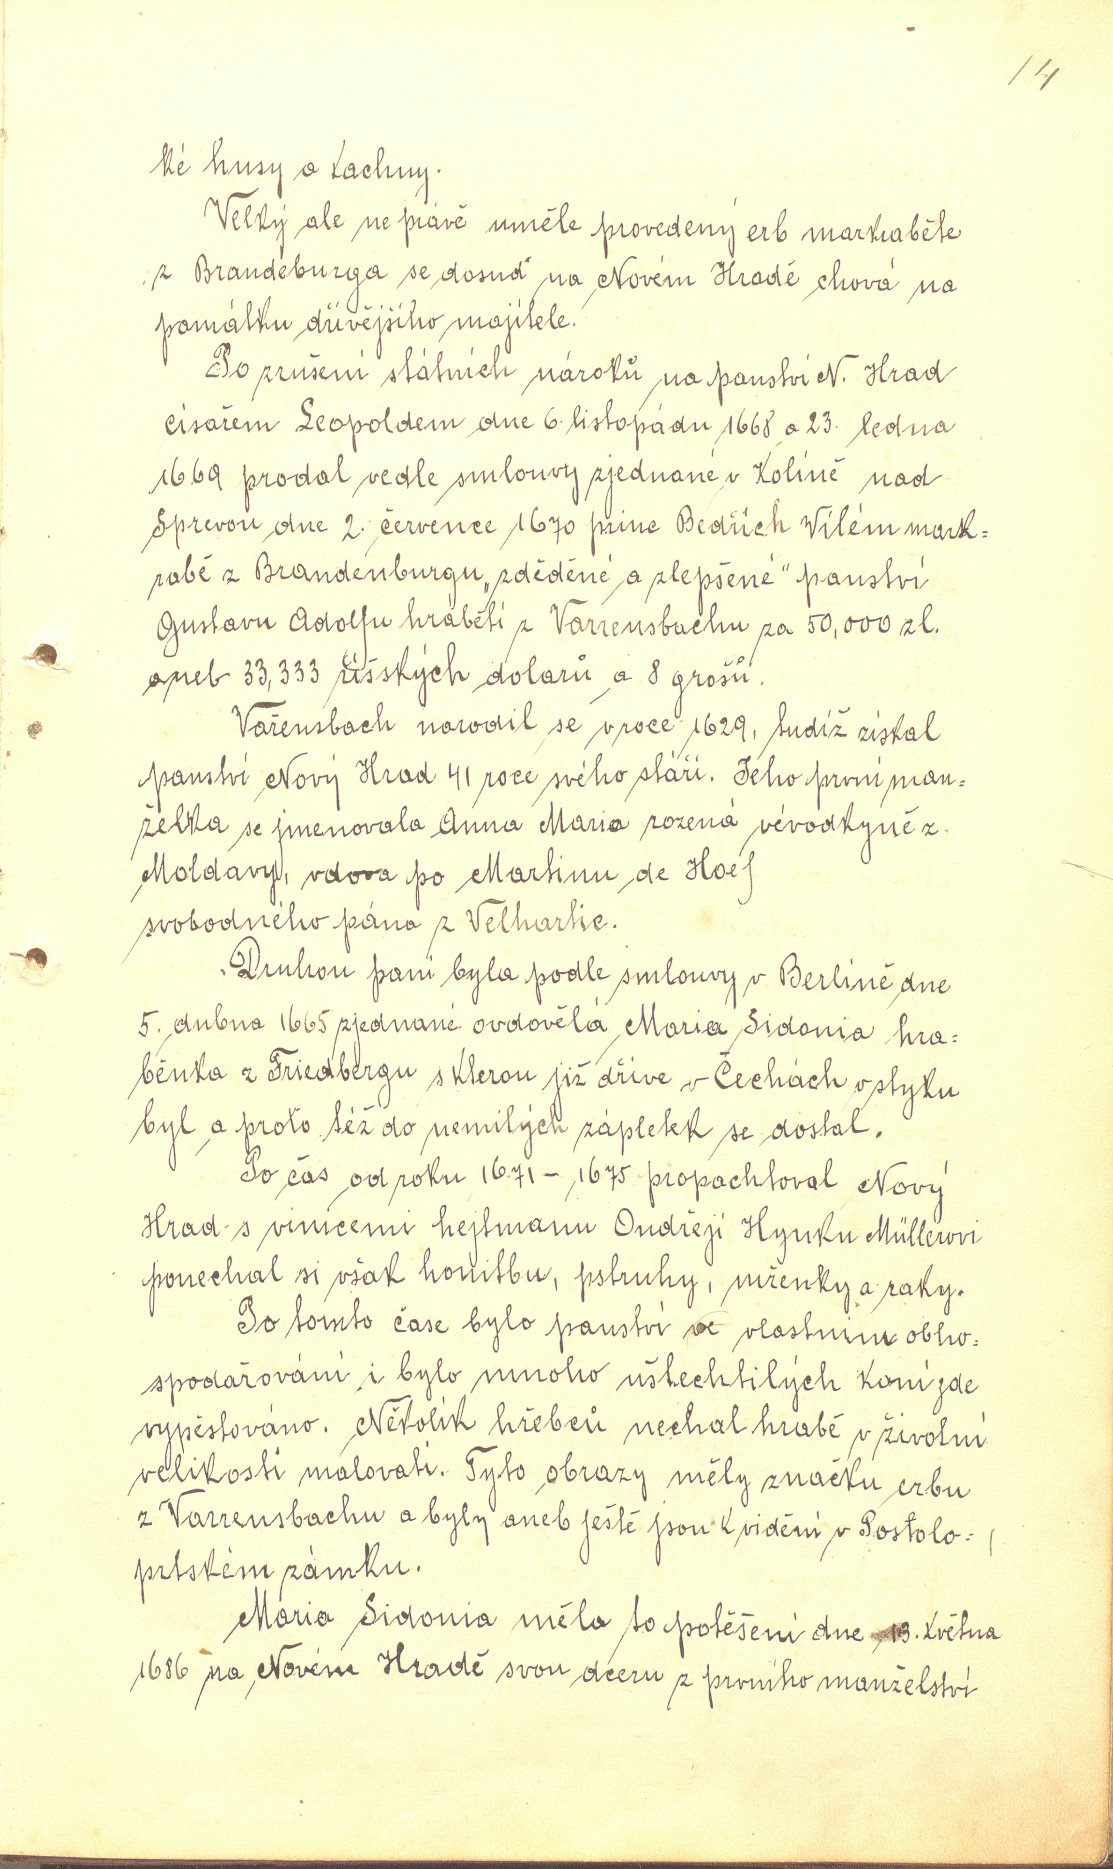 14
ké husy a kachny.
Velký ale ne právě uměle provedený erb markraběte
z Brandeburga se dosud na Novém Hradě chová na
památku dřívějšího majitele.
Po zrušení státních nároků na panství N. Hrad
císařem Leopoldem dne 6. listopádu 1668 a 23. ledna
1669 prodal vedle smlouvy zjednané v Kolíně nad
Sprevou dne 2. července 1670 princ Bedřich Vilém mark=
rabě z Brandenburgu „zděděné a zlepšené" panství
Gustavu Adolfu hraběti z Varrensbachu za 50,000 zl.
aneb 33,333 říšských dolarů a 8 grošů.
Vařensbach narodil se v roce 1629, tudíž získal
panství Nový Hrad 41 roce svého stáří. Jeho první man=
želka se jmenovala Anna Maria rozená vévodkyně z
Moldavy, vdova po Martinu de Hoef
svobodného pána z Velhartic.
Druhou paní byla podle smlouvy v Berlíně dne
5. dubna 1665 zjednané ovdovělá Maria Sidonia hra=
běnka z Friedbergu s kterou již dříve v Čechách v styku
byl a proto též do nemilých zápletek se dostal.
Po čas od roku 1671 – 1675 propachtoval Nový
Hrad s vinicemi hejtmanu Ondřeji Hynku Müllerovi
ponechal si však honitbu, pstruhy, mřenky a raky.
Po tomto čase bylo panství ve vlastním obho=
spodařování i bylo mnoho ušlechtilých koní zde
vypěstováno. Několik hřebců nechal hrabě v životní
velikosti malovati. Tyto obrazy měly značku erbu
z Varrensbachu a byly aneb ještě jsou k vidění v Postolo=
prtském zámku.
Maria Sidonia měla to potěšení dne 13. května
1686 na Novém Hradě svou dceru z prvního manželství